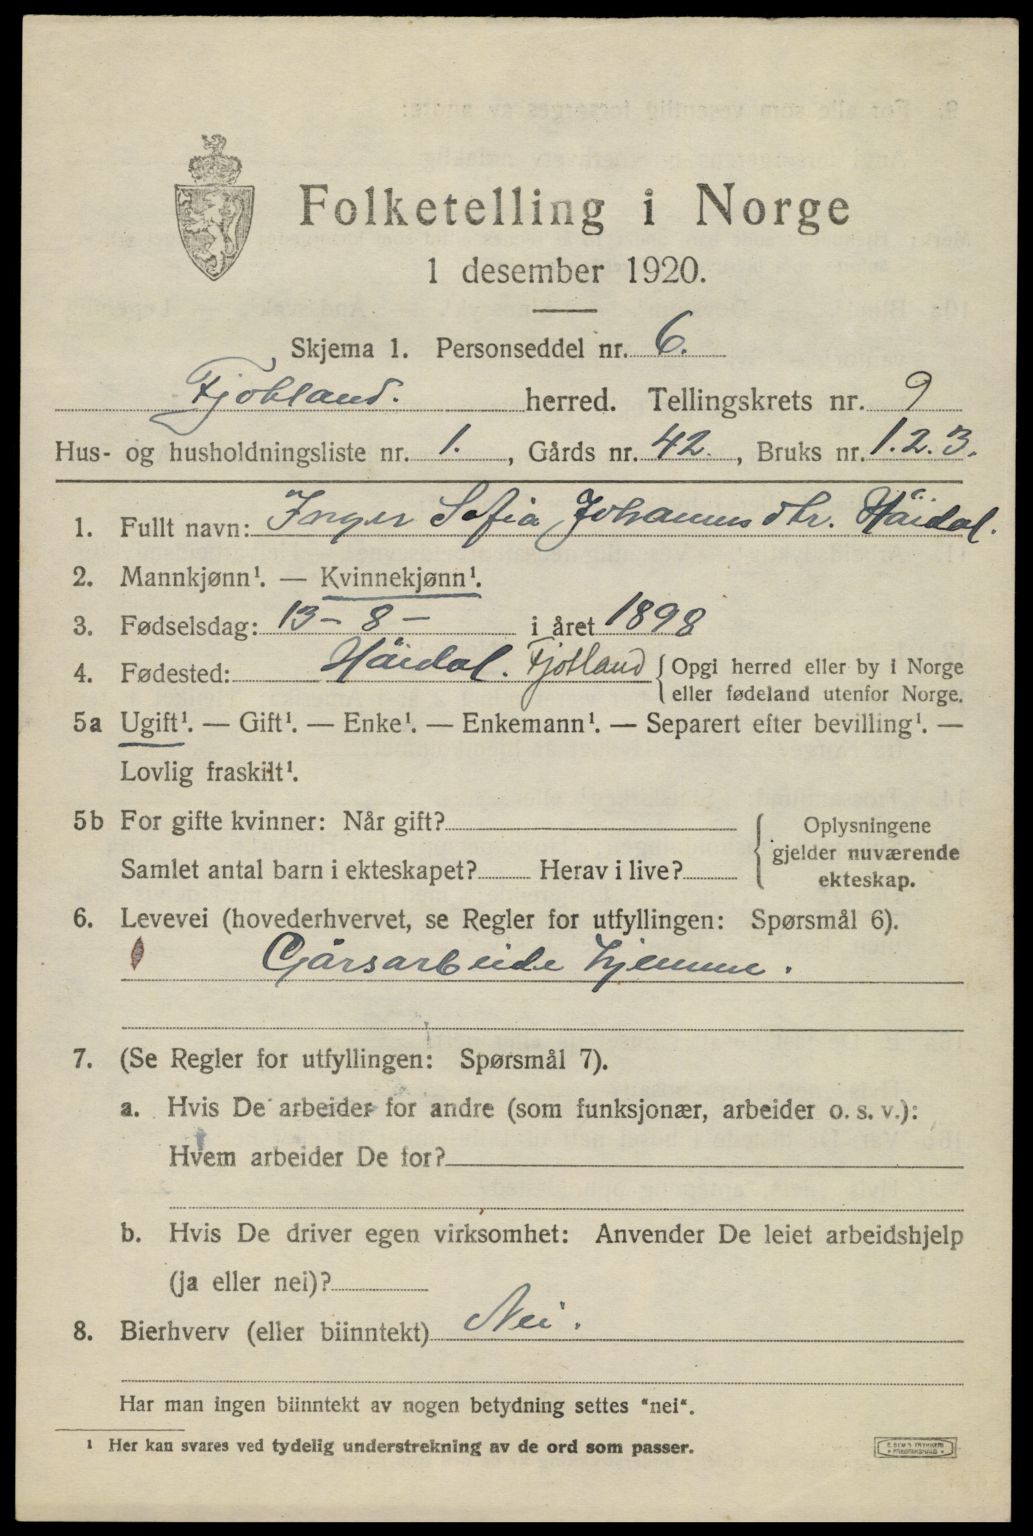 Folketelling i Norge
1 desember 1920.
Skjema 1. Personseddel nr. 6.
Fjotland. herred. Tellingskrets nr. 9
Hus- og husholdningsliste nr. 1. , Gårds nr. 42. , Bruks nr. 1.2.3.
1. Fullt navn: Inger Sofia Johannesdtr. Häidal.
2. Mannkjønn¹. — Kvinnekjønn¹.
3. Fødselsdag: 13 - 8 - i året 1898
4. Fødested: Häidal. Fjotland { Opgi herred eller by i Norge
eller fødeland utenfor Norge.
5a Ugift¹. — Gift¹. — Enke¹. — Enkemann¹. — Separert efter bevilling¹. —
Lovlig fraskilt¹.
5b For gifte kvinner: Når gift? { Oplysningene
gjelder nuværende
Samlet antal barn i ekteskapet? Herav i live?
ekteskap.
6. Levevei (hovederhvervet, se Regler for utfyllingen: Spørsmål 6).
Gårsarbeide hjemme.
7. (Se Regler for utfyllingen: Spørsmål 7).
a. Hvis De arbeider for andre (som funksjonær, arbeider o. s. v.):
Hvem arbeider De for?
b. Hvis De driver egen virksomhet: Anvender De leiet arbeidshjelp
(ja eller nei)?
8. Bierhverv (eller biinntekt) Nei.
Har man ingen biinntekt av nogen betydning settes "nei".
¹ Her kan svares ved tydelig understrekning av de ord som passer.